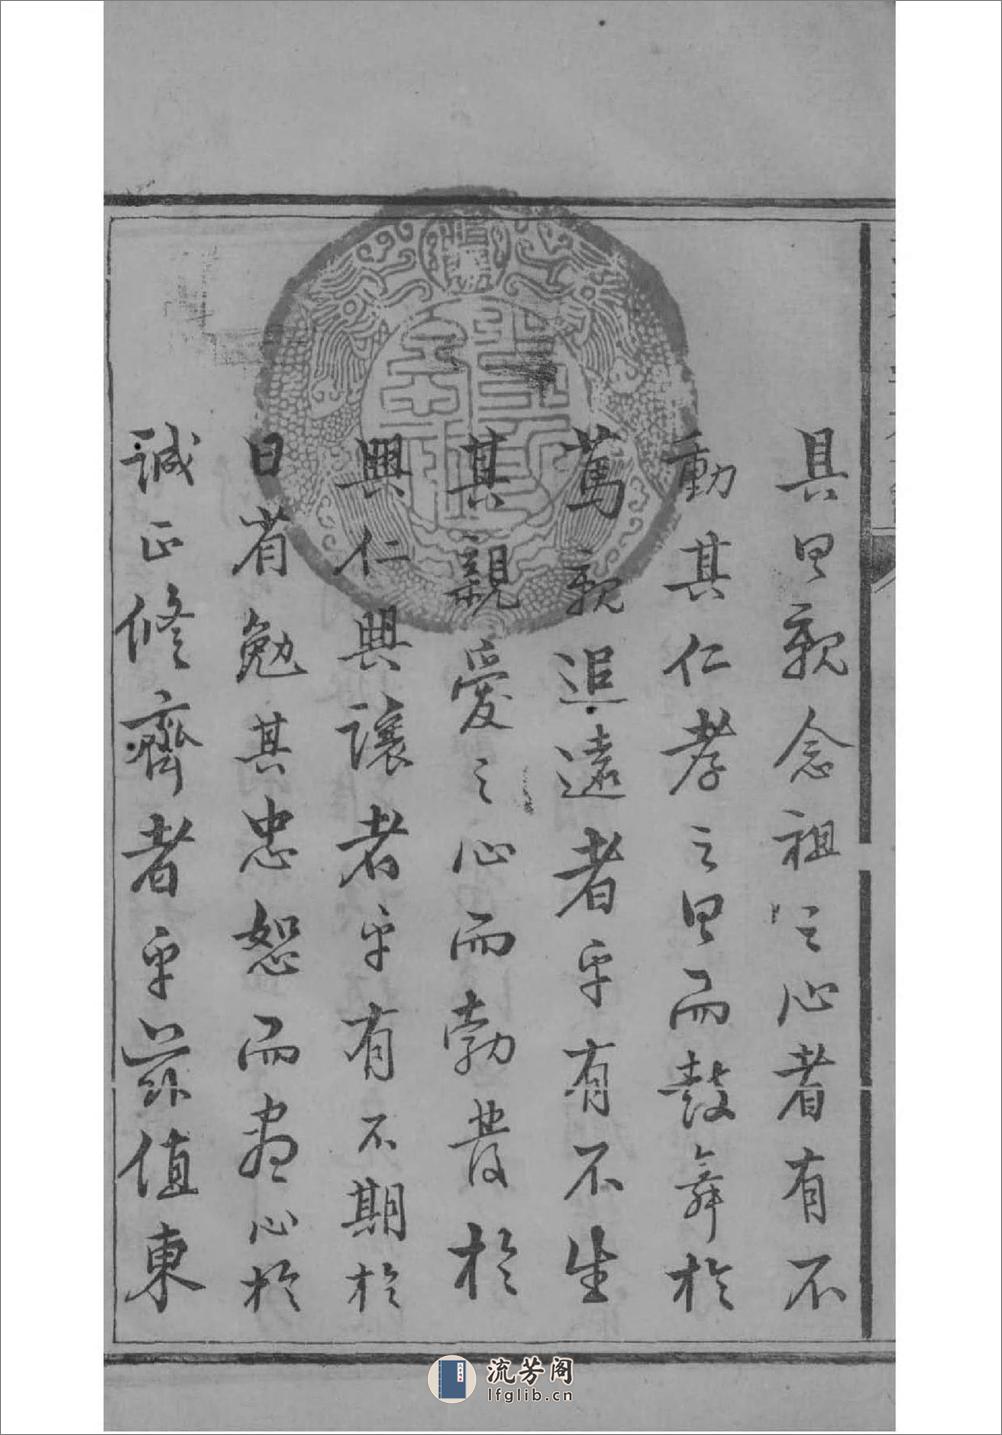 具思親念祖之心者有不
動其仁孝之思而鼓舞於
篤親追遠者乎有不生
其親愛之心而勃發於
興仁興讓者乎有不期於
日省勉其忠恕而盡心於
誠正修齊者乎茲值東
流芳阁
lfglib.cn